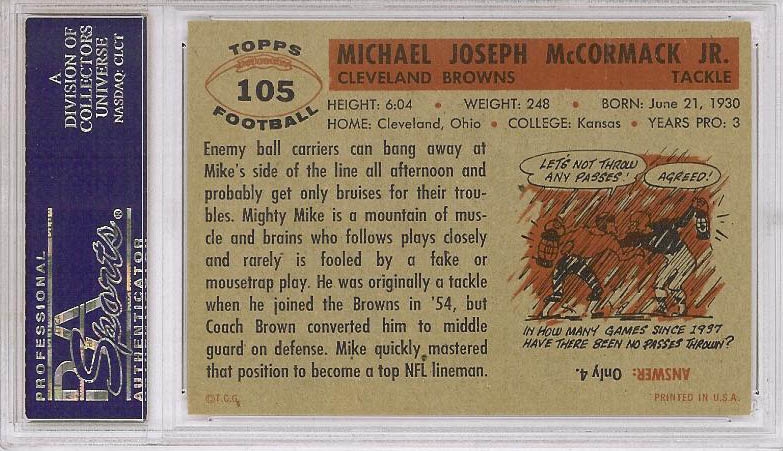 A
DIVISION OF
COLLECTORS
UNIVERSE
NASDAQ: CLCT
PROFESSIONAL
PSA
Sports®
AUTHENTICATOR
TOPPS
105
FOOTBALL
MICHAEL JOSEPH McCORMACK JR.
CLEVELAND BROWNS TACKLE
HEIGHT: 6:04 • WEIGHT: 248 • BORN: June 21, 1930
HOME: Cleveland, Ohio • COLLEGE: Kansas • YEARS PRO: 3
Enemy ball carriers can bang away at
Mike's side of the line all afternoon and
probably get only bruises for their trou-
bles. Mighty Mike is a mountain of mus-
cle and brains who follows plays closely
and rarely is fooled by a fake or
mousetrap play. He was originally a tackle
when he joined the Browns in '54, but
Coach Brown converted him to middle
guard on defense. Mike quickly mastered
that position to become a top NFL lineman.
©T.C.G.
LET'S NOT THROW
ANY PASSES!
AGREED!
IN HOW MANY GAMES SINCE 1937
HAVE THERE BEEN NO PASSES THROWN?
ANSWER: Only 4.
PRINTED IN U.S.A.